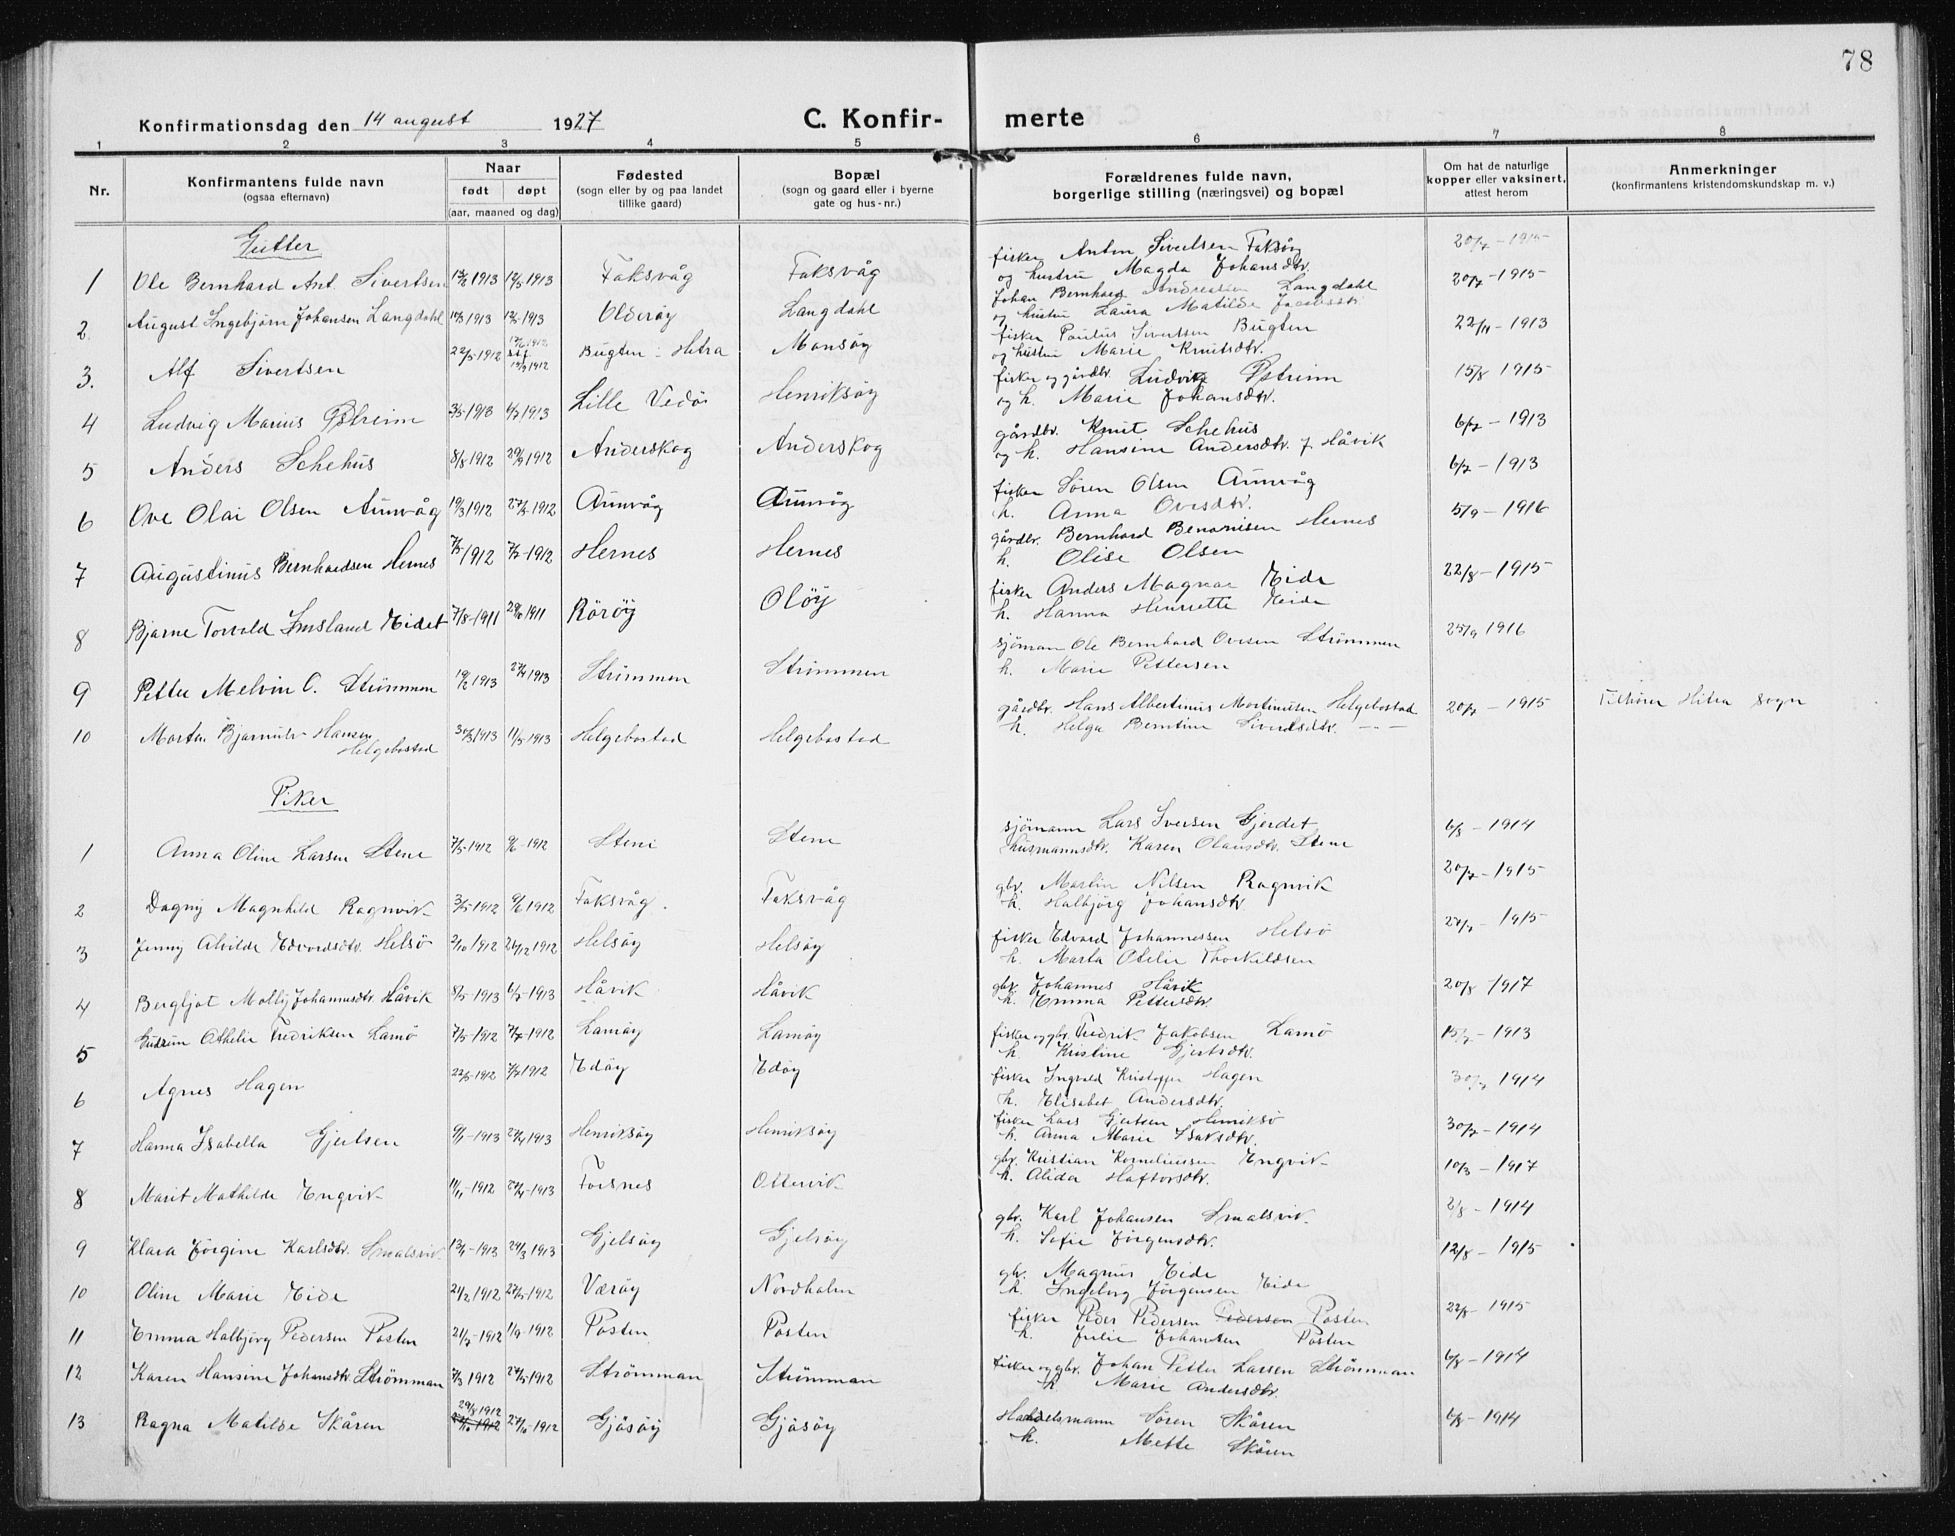 78
Konfirmationsdag den 14 august 1927
C. Konfirmerte
1 2 3 4 5 6 7 8
Nr.
Konfirmantens fulde navn
(ogsaa efternavn)
Naar
født døpt
(aar, maaned og dag)
Fødested
(sogn eller by og paa landet
tillike gaard)
Bopæl
(sogn og gaard eller i byerne
gate og hus-nr.)
Forældrenes fulde navn,
borgerlige stilling (næringsvei) og bopæl
Om hat de naturlige
kopper eller vaksinert,
attest herom
Anmerkninger
(konfirmantens kristendomskundskap m. v.)
Gutter
1 Ole Bernhard Ant. Sivertsen 1913 1913 Faksvåg Faksvåg fisker Anton Sivertsen Faksvåg 20/7 - 1915
og hustru Magda Johansdtr.
2 August Ingebjørn Johansen Langdahl 1913 1913 Olderøy Langdahl Johan Bernhard Andreasen Langdahl 20/7 - 1915
og hustru Laura Matilde
3. Alf Sivertsen 22/5-1912 1912 Bugten : Hitra Monsøy fisker Paulus Sivertsen Bugten 22/11 - 1913
og hustru Marie Knutsdtr.
4 Ludvig Marius Østreim 1913 1913 Lille Vedøi Henriksøy fisker og gårdbr. Ludvik Østreim 15/8 1915
og h. Marie Johansdtr.
5 Anders Schehus 8/8 1912 29/9 1912 Anderskog Anderskog gårdbr. Knut Schehus 6/7 - 1913
og h. Hansine Andersdtr. f. Håvik
6 Ove Olai Olsen Aunvåg 19/3 1912 1912 Aunvåg Aunvåg fisker Søren Olsen Aunvåg 6/7 - 1913
h. Anna Ovesdtr.
7 Augustinus Bernhardsen Hernes 1912 1912 Hernes Hernes gårdbr. Bernhard Benonisen Hernes 5/9 - 1916
h. Olise Olsen
8 Bjarne Torvald Imsland Eidet 7/8-1911 29/10 1911 Rörøy Oløy fisker Anders Magnar Eide 22/8 - 1915
h. Hanna Henriette Eide
9 Petter Melvin O. Strömmen 19/2 1913 1913 Strømmen Strømmen sjømann Ole Bernhard Ovesen Strømmen 25/9 1916
h. Marie Pettersen
10 Morten Bjarnulv Hansen 1913 11/5 1913 Helgebostad Helgebostad gårdbr. Hans Albertinus Mortinusen Helgebostad 20/7 - 1915 Tilhører Hitra sogn
Helgebostad h. Helga Berntine Sivertsdtr. - -
Piker
1 Anna Oline Larsen Stene 7/5-1912 9/6-1912 Stene Stene sjømann Lars Iversen Gjerdet 6/8 - 1914
husmannsdtr. Karen Olausdtr. Stene
2 Dagny Magnhild Ragnvik 3/5-1912 9/6 1912 Faksvåg. Faksvåg gbr. Martin Nilsen Ragnvik 20/7 - 1915
h. Halbjørg Johansdtr
3 Jenny Alvilde Edvardsdtr. Helsø 2/10 1912 26/12 1912 Helsøy Helsøy fisker Edvard Johannessen Helsø 1915
h. Marta Otelie Thorkildsen
4 Bergljot Molly Johannesdtr. Håvik 8/5-1913 1913 Håvik Håvik gbr. Johannes Håvik 20/8 1917
h. Emma Pettersdtr.
5 Gudrun Othelie Fredriksen Lamø 7/5-1912 7/7-1912 Lamøy Lamøy fisker og gbr. Fredrik Jakobsen Lamø 15/7 - 1913
h. Kristine Gjertsdtr.
6 Agnes Hagen 22/5-1912 7/7 1912 Edøy Edøy fisker Ingvald Kristoffer Hagen 30/7 1914
h. Elisabet Andersdtr.
7 Hanna Isabella Gjertsen 9/1-1913 27/4 1913 Henriksøy Henriksøy fisker Lars Gjertsen Henriksø 30/7 - 1914
h. Anna Marie Isaksdtr.
8 Marit Mathilde Engvik 11/11-1912 1913 Forsnes Ottervik gbr. Kristian Korneliussen Engvik 10/3 - 1917
h. Alida Haftorsdtr.
9 Klara Jørgine Karlsdtr. Smalsvik 13/1-1913 24/3 1913 Gjelsøy Gjelsøy gbr. Karl Johansen Smalsvik 2/8 - 1914
h. Sofie Jörgensdtr.
10 Oline Marie Eide 21/2 1912 1912 Værøy Nordholm gbr. Magnus Eide 12/8 - 1915
h. Ingeborg Jörgensen Eide
11 Emma Halbjørg Pedersen Posten 21/7-1912 1/9-1912 Posten Posten fisker Peder Pedersen Pedersen Posten 22/8 - 1915
h. Julie Johansen Posten
12 Karen Hansine Johansdtr Strömman 7/3 1912 1912 Strømman Strømman fisker og gbr. Johan Petter Larsen Strømman 6/8 - 1914
h. Marie Andersdtr.
13 Ragna Matilde Skåren 29/8 1912 27/10-1912 Gjøsøy Gjøsøy Handelsmann Søren Skåren 6/8 - 1914
h. Mette Skåren